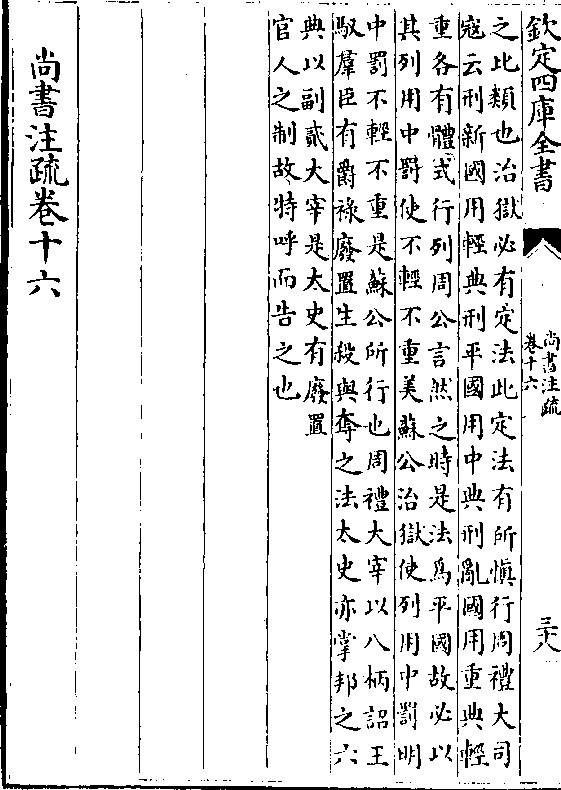 欽定四庫全書
尚書注疏
卷十六
三十八
之此類也治獄必有定法此定法有所慎行周禮大司
寇云刑新國用輕典刑平國用中典刑亂國用重典輕
重各有體式行列周公言然之時是法爲平國故必以
其列用中罰使不輕不重美蘇公治獄使列用中罰明
中罰不輕不重是蘇公所行也周禮大宰以八柄詔王
馭羣臣有爵祿廢置生殺與奪之法太史亦掌邦之六
典以副貳大宰是太史有廢置
官人之制故特呼而告之也
尚書注疏卷十六